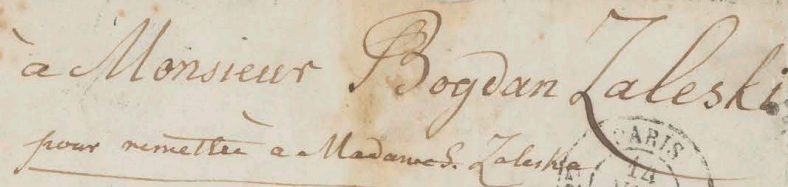 à Monsieur Bogdan Zaleski
pour remettre à Madame S. Zaleska
PARIS
14